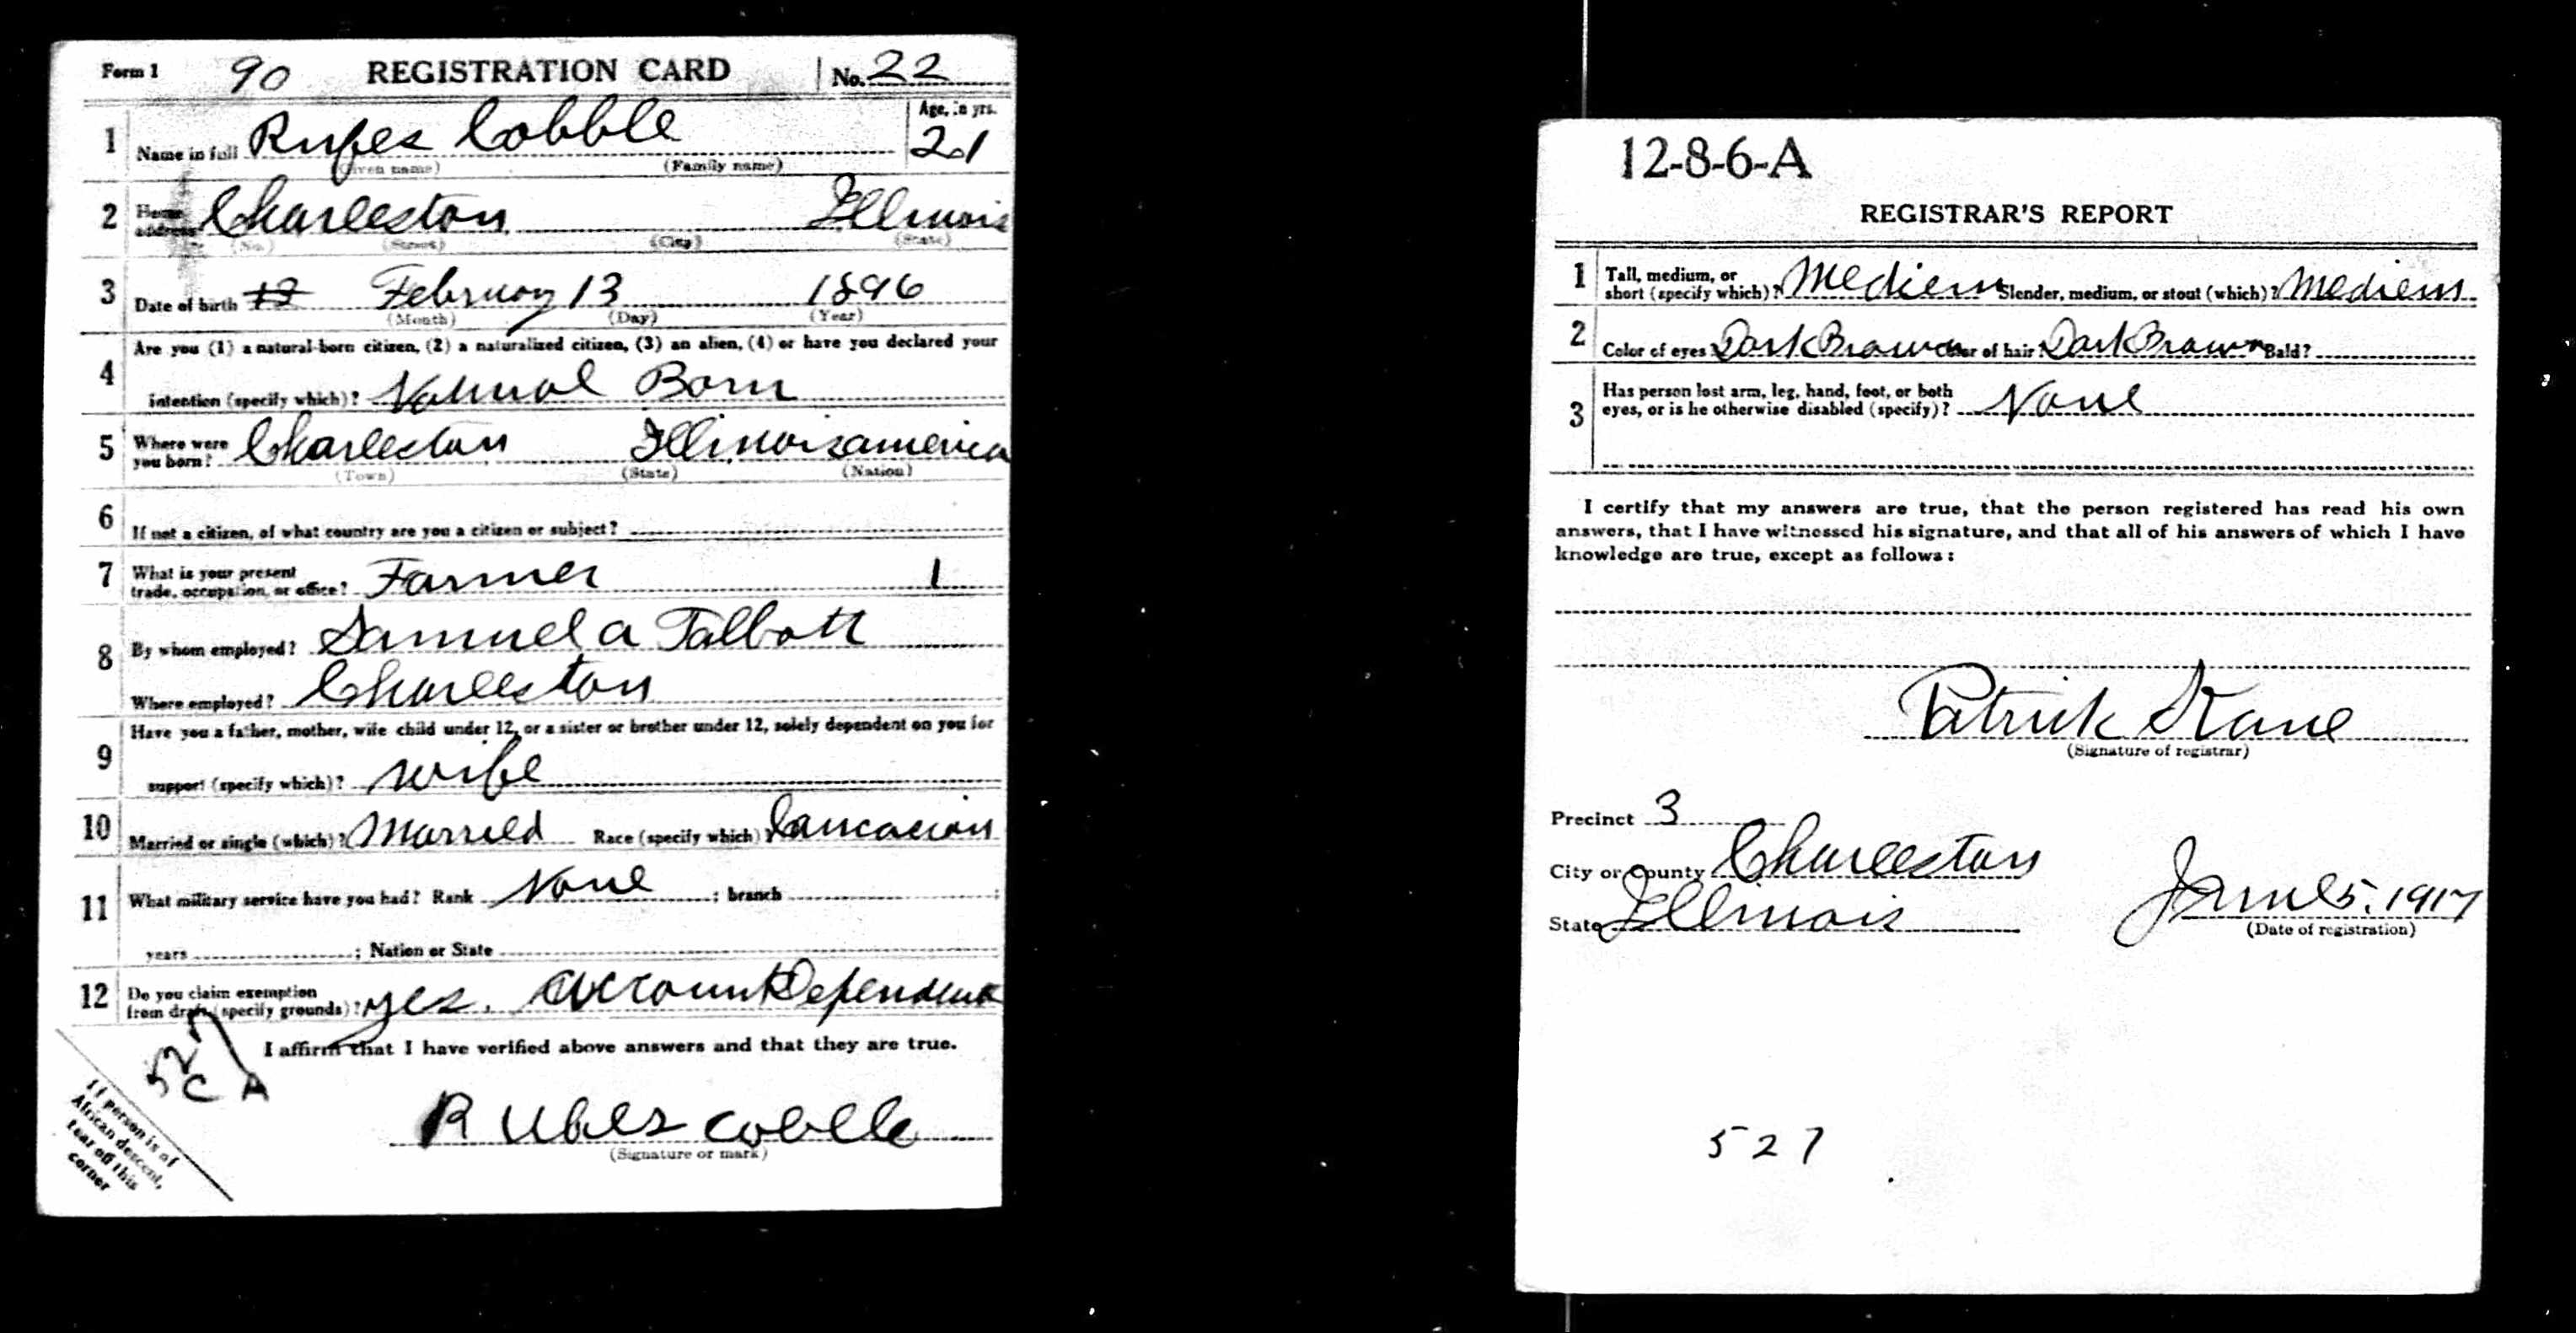 Form 1 90 REGISTRATION CARD No. 22
1 Name in full Rufes Cobble Age, in yrs. 21
(Given name) (Family name)
2 Home address Charleston Illinois
(No.) (Street) (City) (State)
3 Date of birth 13 February 13 1896
(Month) (Day) (Year)
4 Are you (1) a natural-born citizen, (2) a naturalized citizen, (3) an alien, (4) or have you declared your
intention (specify which)? Natural Born
5 Where were you born? Charleston Illinois america
(Town) (State) (Nation)
6 If not a citizen, of what country are you a citizen or subject?
7 What is your present trade, occupation, or office? Farmer 1
8 By whom employed? Samuel a Talbott
Where employed? Charleston
9 Have you a father, mother, wife child under 12, or a sister or brother under 12, solely dependent on you for
support (specify which)? wife
10 Married or single (which)? Married Race (specify which)? Caucasian
11 What military service have you had? Rank None ; branch ;
years ; Nation or State
12 Do you claim exemption from draft (specify grounds)? yes. account Dependent
I affirm that I have verified above answers and that they are true.
527
C A
If person is of
African descent,
tear off this
corner
Rubes cobble
(Signature or mark)
12-8-6-A
REGISTRAR'S REPORT
1 Tall, medium, or short (specify which)? Medium Slender, medium, or stout (which)? Medium
2 Color of eyes Dark Brown Color of hair Dark Brown Bald?
3 Has person lost arm, leg, hand, foot, or both
eyes, or is he otherwise disabled (specify)? None
I certify that my answers are true, that the person registered has read his own
answers, that I have witnessed his signature, and that all of his answers of which I have
knowledge are true, except as follows:
Patrick Kane
(Signature of registrar)
Precinct 3
City or County Charleston
State Illinois June 5, 1917
(Date of registration)
527